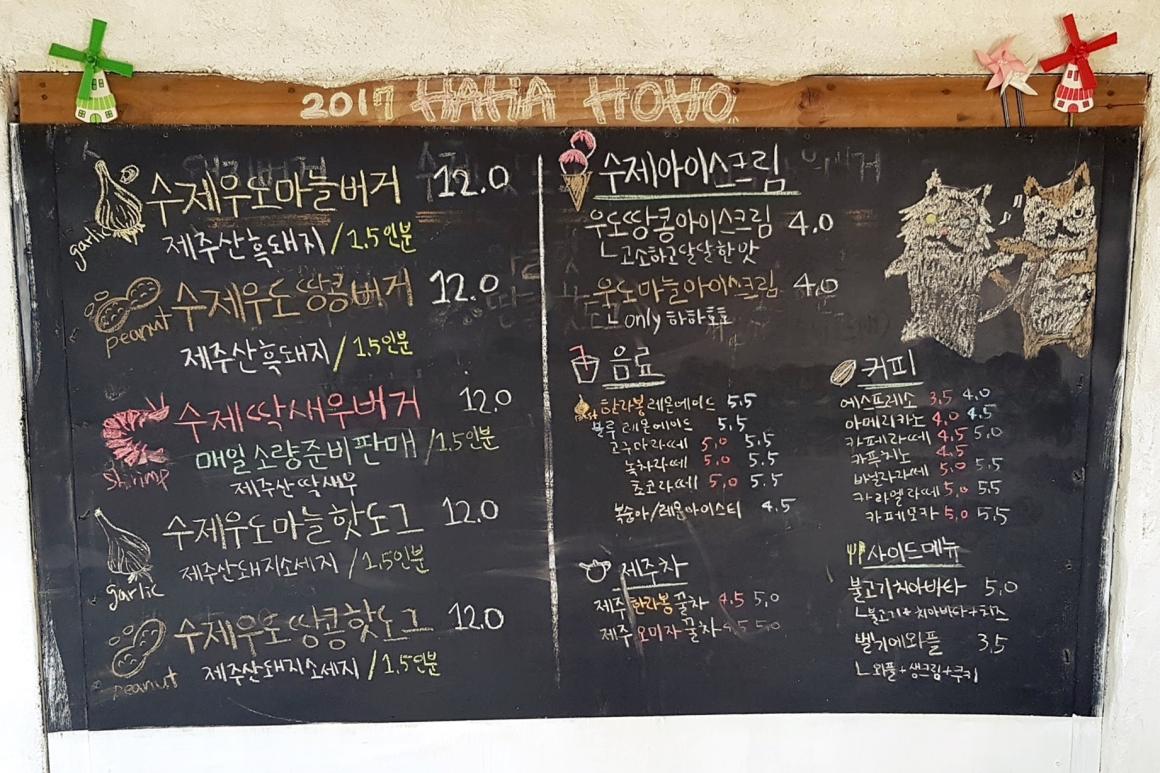 2017 HAHA HOHO
수제우도마늘버거 12.0
garlic
제주산흑돼지 / 1.5인분
수제우도땅콩버거 12.0
peanut
제주산흑돼지 / 1.5인분
수제딱새우버거 12.0
매일소량준비판매 / 1.5인분
shrimp
제주산딱새우
수제우도마늘핫도그 12.0
제주산돼지소세지 / 1.5인분
garlic
수제우도땅콩핫도그 12.0
제주산돼지소세지 / 1.5인분
peanut
수제아이스크림
우도땅콩아이스크림 4.0
ㄴ고소하고달달한맛
우도마늘아이스크림 4.0
ㄴ only 하하호호
음료
한라봉레몬에이드 5.5
블루레몬에이드 5.5
고구마라떼 5.0 5.5
녹차라떼 5.0 5.5
초코라떼 5.0 5.5
복숭아/레몬아이스티 4.5
제주차
제주한라봉꿀차 4.5 5.0
제주오미자꿀차 4.5 5.0
커피
에스프레소 3.5 4.0
아메리카노 4.0 4.5
카페라떼 4.5 5.0
카푸치노 4.5
바닐라라떼 5.0 5.5
카라멜라떼 5.0 5.5
카페모카 5.0 5.5
사이드메뉴
불고기치아바타 5.0
ㄴ불고기+치아바타+치즈
벨기에와플 3.5
ㄴ와플+생크림+쿠키